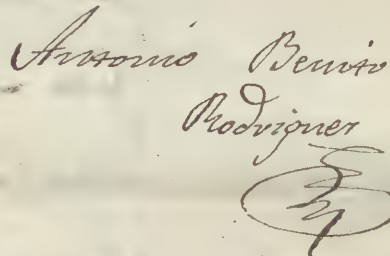 Antonio Benito
Rodriguez